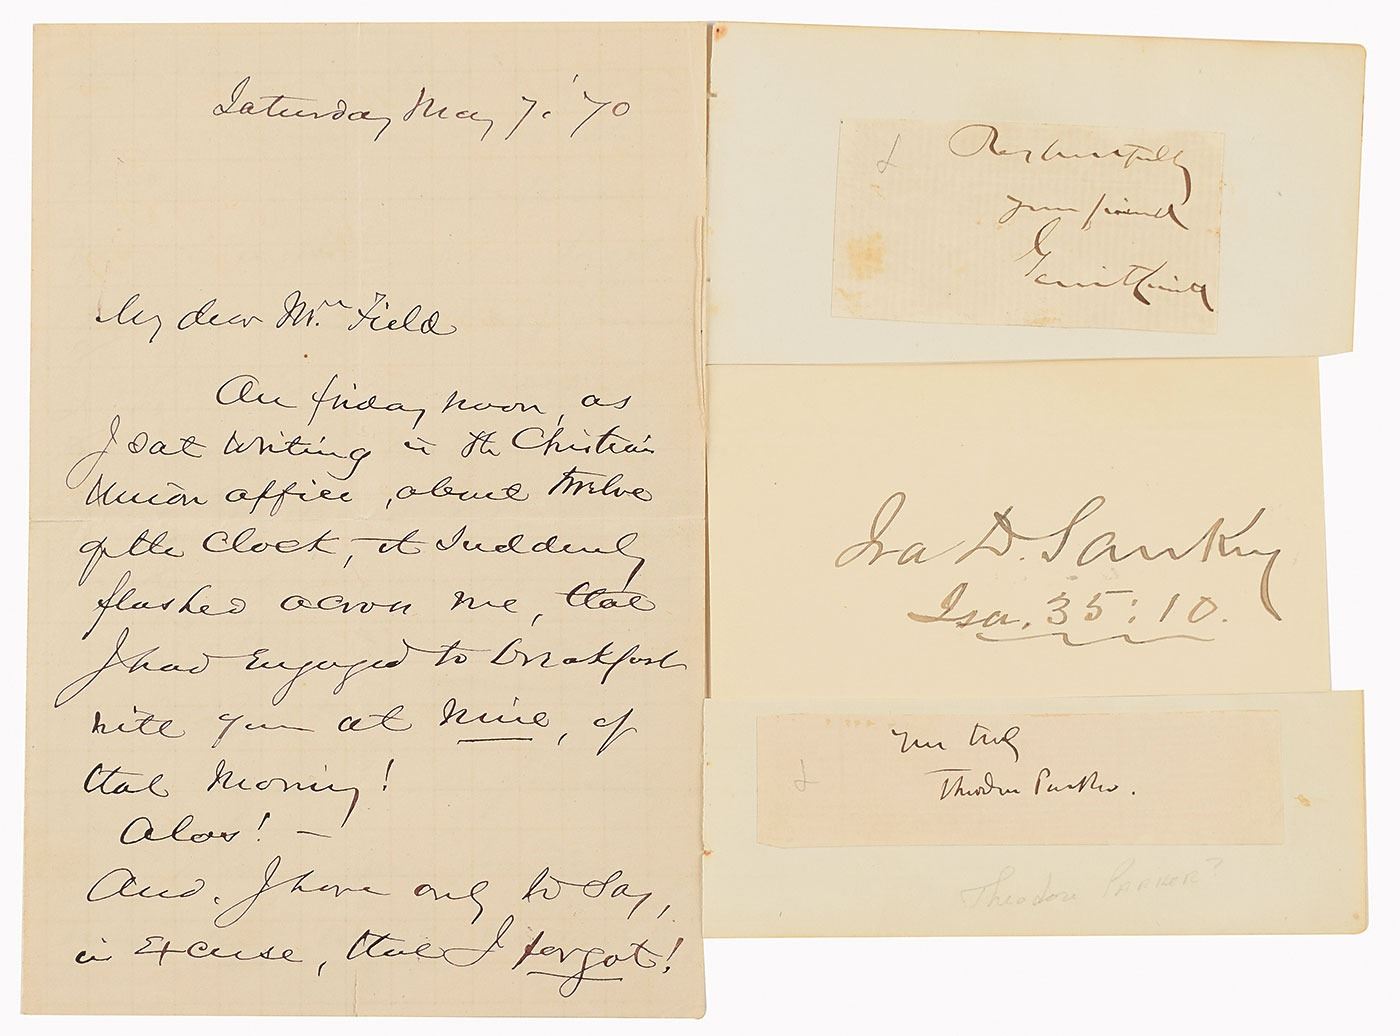 Saturday May 7. '70
My dear Mr. Field
On friday noon, as
I sat writing in the Christian
Union office, about twelve
of the clock, it suddenly
flashed across me, that
I had engaged to breakfast
with you at nine, of
that morning!
Alas! —
And. I have only to say,
in excuse, that I forgot!
Respectfully
your friend
Gerrit Smith
Ira D. Sankey
Isa. 35:10.
Your truly
Theodore Parker.
Theodore Parker?